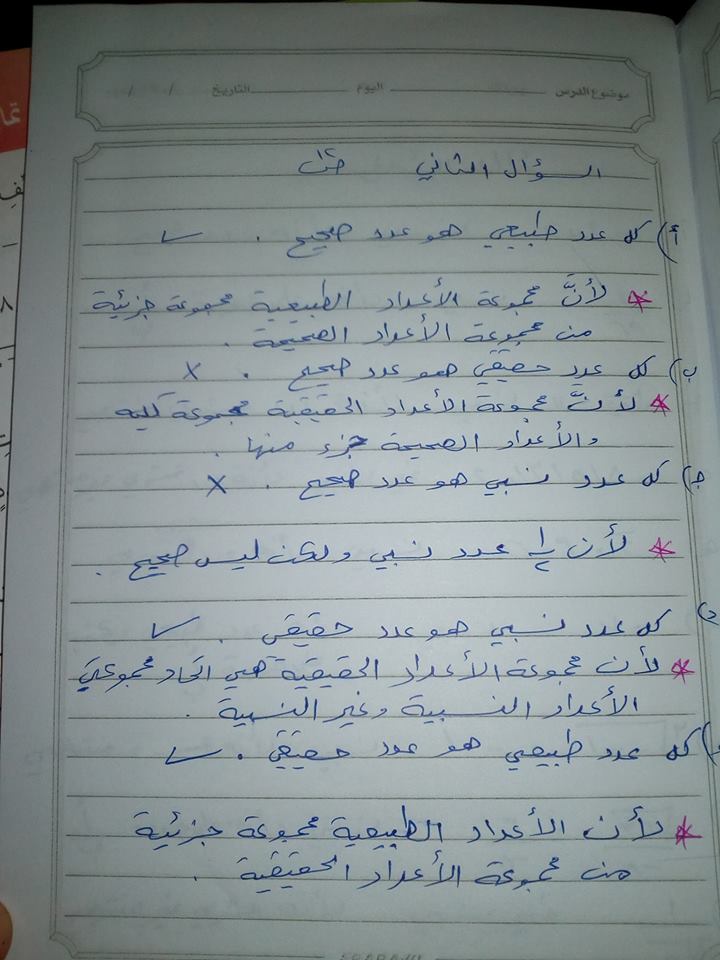 موضوع الدرس اليوم التاريخ / /
السؤال الثاني ص١٢
أ) كل عدد طبيعي هو عدد صحيح . ✓
* لأنَّ مجموعة الأعداد الطبيعية مجموعة جزئية
من مجموعة الأعداد الصحيحة .
ب) كل عدد حقيقي هو عدد صحيح . ×
* لأنَّ مجموعة الأعداد الحقيقية مجموعة كليه
والأعداد الصحيحة جزء منها .
ج) كل عدد نسبي هو عدد صحيح . ×
* لأن ١/٢ عدد نسبي ولكن ليس صحيح .
د) كل عدد نسبي هو عدد حقيقي . ✓
* لأن مجموعة الأعداد الحقيقية هي اتحاد مجموعتي
الأعداد النسبية وغير النسبية .
كل عدد طبيعي هو عدد حقيقي . ✓
* لأن الأعداد الطبيعية مجموعة جزئية
من مجموعة الأعداد الحقيقية .